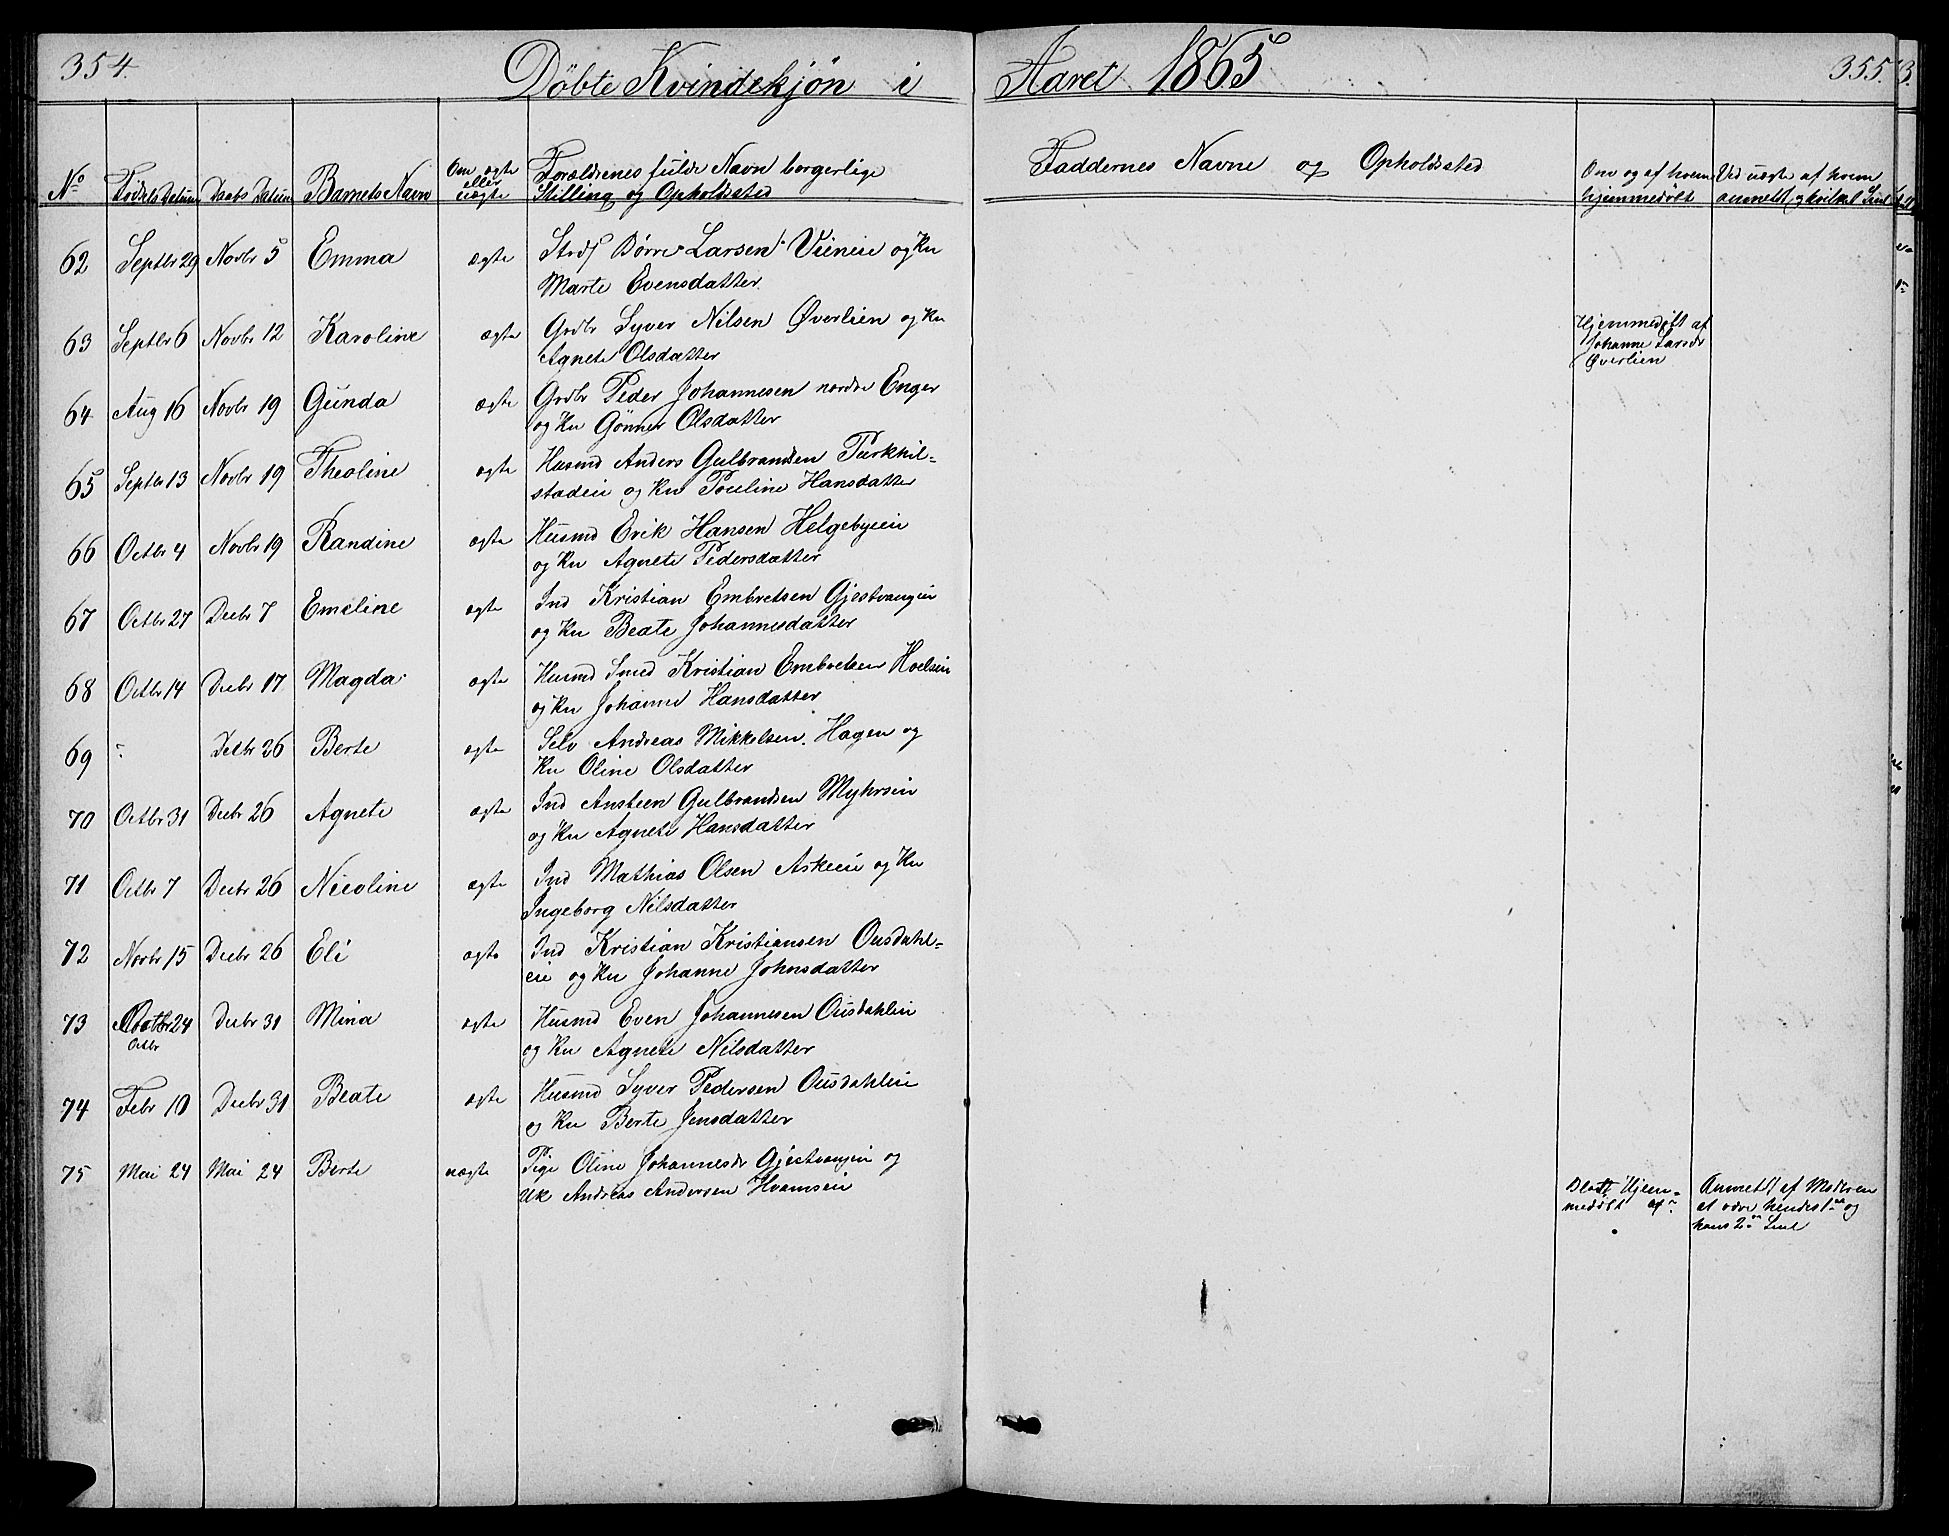 354.
Döbte Kvindekjön i Aaret 1865
355.
No
Födsels Datum
Daabs Datum
Barnets Navn
Om ægte
eller
uægte
Forældrenes fulde Navn borgerlige
Stilling og Opholdssted
Faddernes Navne og Opholdssted
Om og af hvem
hjemmedøbt
Ved uægte af hvem
anmeldt og hvilket Leiel
62 Septbr 29 Novbr 5 Emma ægte Børre Larsen og Ku
Marte Evensdatter
63 Septbr 6 Novbr 12 Karoline ægte Grdbr Syver Nilsen Øverlien og Ku
Agnete Olsdatter
Hjemmedøbt af
Johanne Larsdr
Øverlien
64 Aug 16 Novbr 19 Gunda ægte Grdbr Peder Johannesen nordre Enger
og Ku Gønner Olsdatter
65 Septbr 13 Novbr 19 Theoline ægte Husmd Anders Gulbrandsen Turkkil-
stadeie og Ku Pouline Hansdatter
66 Octbr 4 Novbr 19 Randine ægte Husmd Erik Hansen Helgebyeie
og Ku Agnete Pedersdatter
67 Octbr 27 Decbr 7 Emeline ægte Ind Kristian Embretsen Gjestvangeie
og Ku Beate Johannesdatter
68 Octbr 14 Decbr 17 Magda ægte Husmd Smed Kristian Embretsen Hoelseie
og Ku Johanne Hansdatter
69 Decbr 26 Berte ægte Selv Andreas Mikkelsen Hagen og
Ku Oline Olsdatter
70 Octbr 31 Decbr 26 Agnete ægte Ind Ansteen Gulbrandsen Myhrseie
og Ku Agnete Hansdatter
71 Octbr 7 Decbr 26 Nicoline ægte Ind Mathias Olsen Askeeie og Ku
Ingeborg Nilsdatter
72 Novbr 15 Decbr 26 Eli ægte Ind Kristian Kristiansen Ousdahl-
eie og Ku Johanne Johnsdatter
73 24 Decbr 31 Mina ægte Husmd Even Johannesen Ousdahleie
Octbr
og Ku Agnete Nilsdatter
74 Febr 10 Decbr 31 Beate ægte Husmd Syver Pedersen Ousdahleie
og Ku Berte Jensdatter
75 Mai 24 Mai 24 Berte uægte Pige Oline Johannesdr Gjestvangeie og
Uk Andreas Andersen Hvamseie
Blott Hjem-
medøbt af
Anmeldt af Moderen
at være hendes 1ste og
hans 2den Leiel